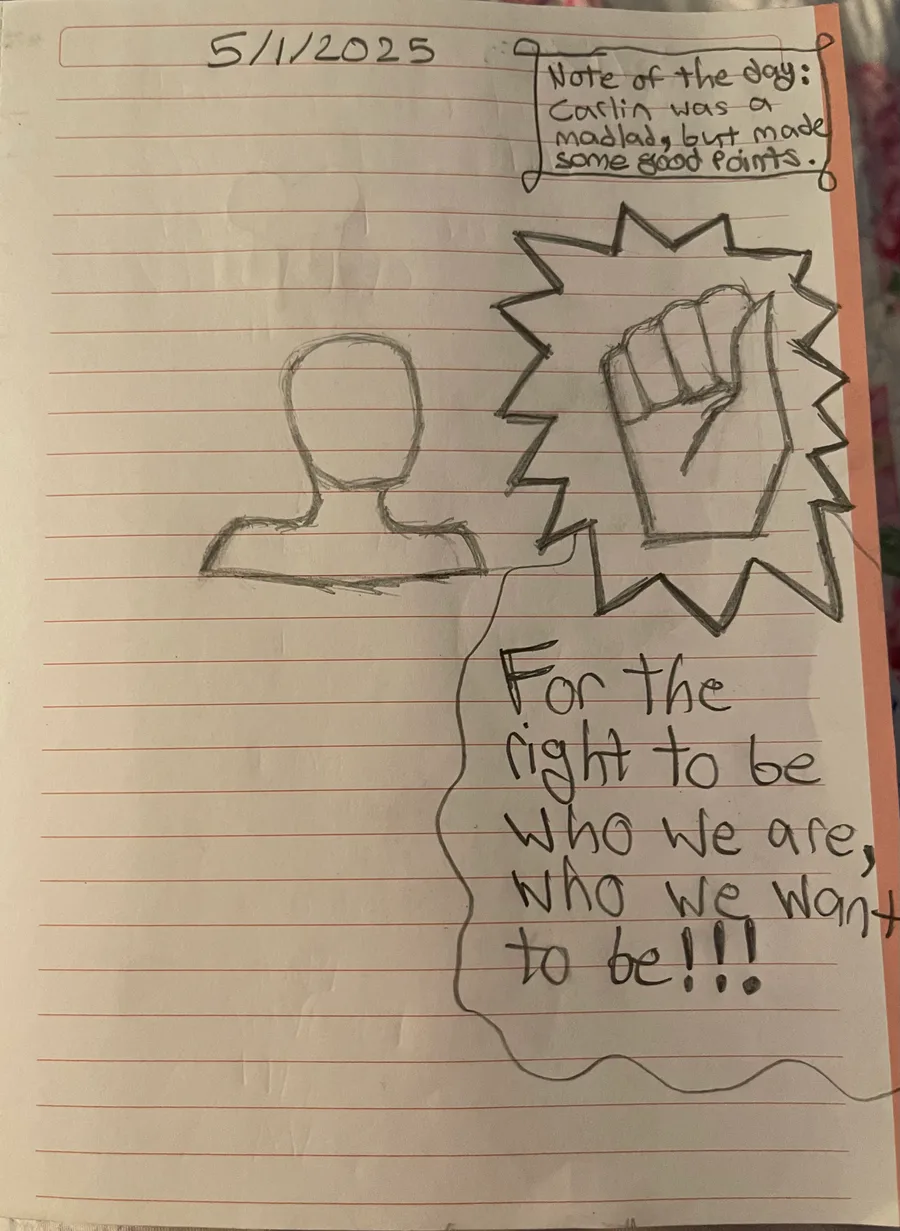 5/1/2025
Note of the day:
Carlin was a
madlad, but made
some good points.
For the
right to be
who we are,
who we want
to be!!!